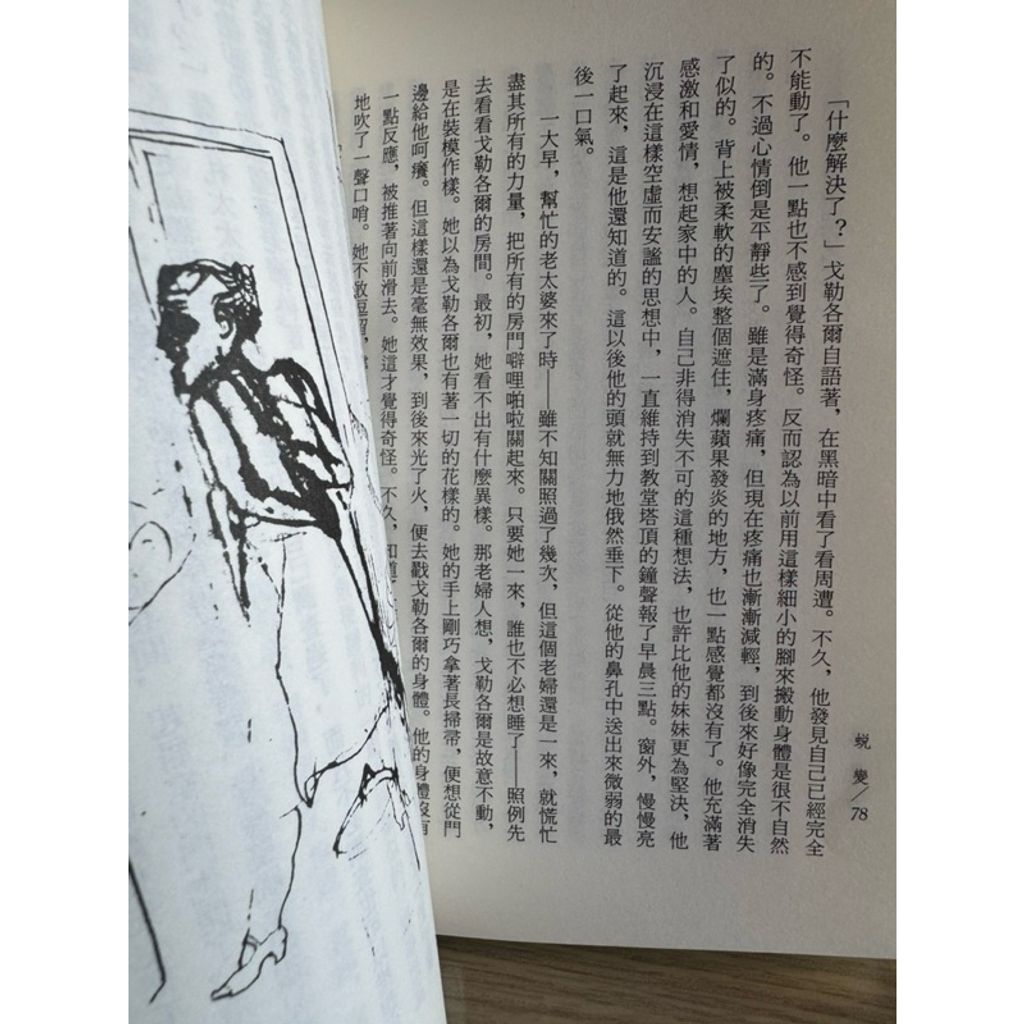 「什麼解決了？」戈勒各爾自語著，在黑暗中看了看周遭。不久，他發見自己已經完全
不能動了。他一點也不感到覺得奇怪。反而認為以前用這樣細小的腳來搬動身體是很不自然
的。不過心情倒是平靜些了。雖是滿身疼痛，但現在疼痛也漸漸減輕，到後來好像完全消失
了似的。背上被柔軟的塵埃整個遮住，爛蘋果發炎的地方，也一點感覺都沒有了。他充滿著
感激和愛情，想起家中的人。自己非得消失不可的這種想法，也許比他的妹妹更為堅決，他
沉浸在這樣空虛而安謐的思想中，一直維持到教堂塔頂的鐘聲報了早晨三點。窗外，慢慢亮
了起來，這是他還知道的。這以後他的頭就無力地俄然垂下。從他的鼻孔中送出來微弱的最
後一口氣。
一大早，幫忙的老太婆來了時——雖不知關照過了幾次，但這個老婦還是一來，就慌忙
盡其所有的力量，把所有的房門噼哩啪啦關起來。只要她一來，誰也不必想睡了——照例先
去看看戈勒各爾的房間。最初，她看不出有什麼異樣。那老婦人想，戈勒各爾是故意不動，
是在裝模作樣。她以為戈勒各爾也有著一切的花樣的。她的手上剛巧拿著長掃帚，便想從門
邊給他呵癢。但這樣還是毫無效果，到後來光了火，便去戳戈勒各爾的身體。他的身體沒有
一點反應，被推著向前滑去。她這才覺得奇怪。不久，知道
地吹了一聲口哨。她不敢逗留，
蛻變／78